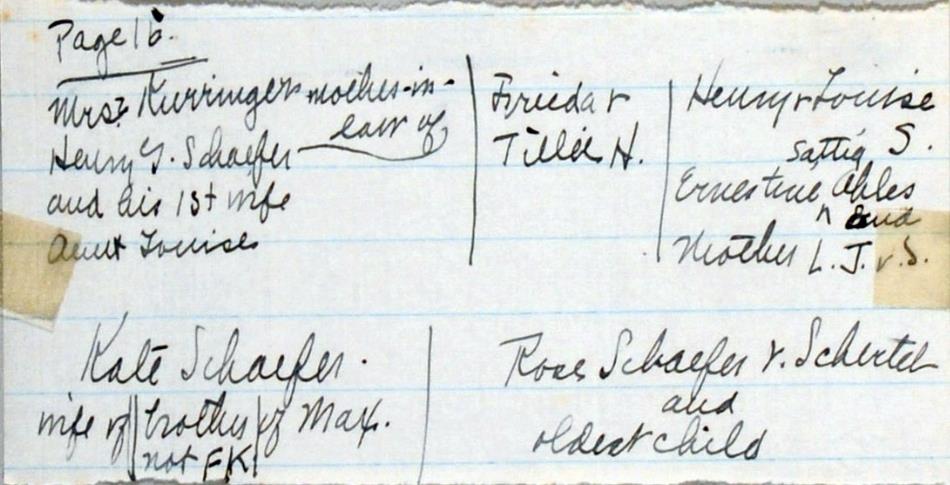 Page 16.
Mrs. Kurringer mother-in-
law of
Henry G. Schaefer
and his 1st wife
Aunt Louise
Frieda &
Tillie H.
Henry & Louise
Sattig S.
Ernestine Ahles
and
Mother L. J. v. S.
Kate Schaefer.
wife of brother of Max.
not FK
Rose Schaefer v. Schertel
and
oldest child